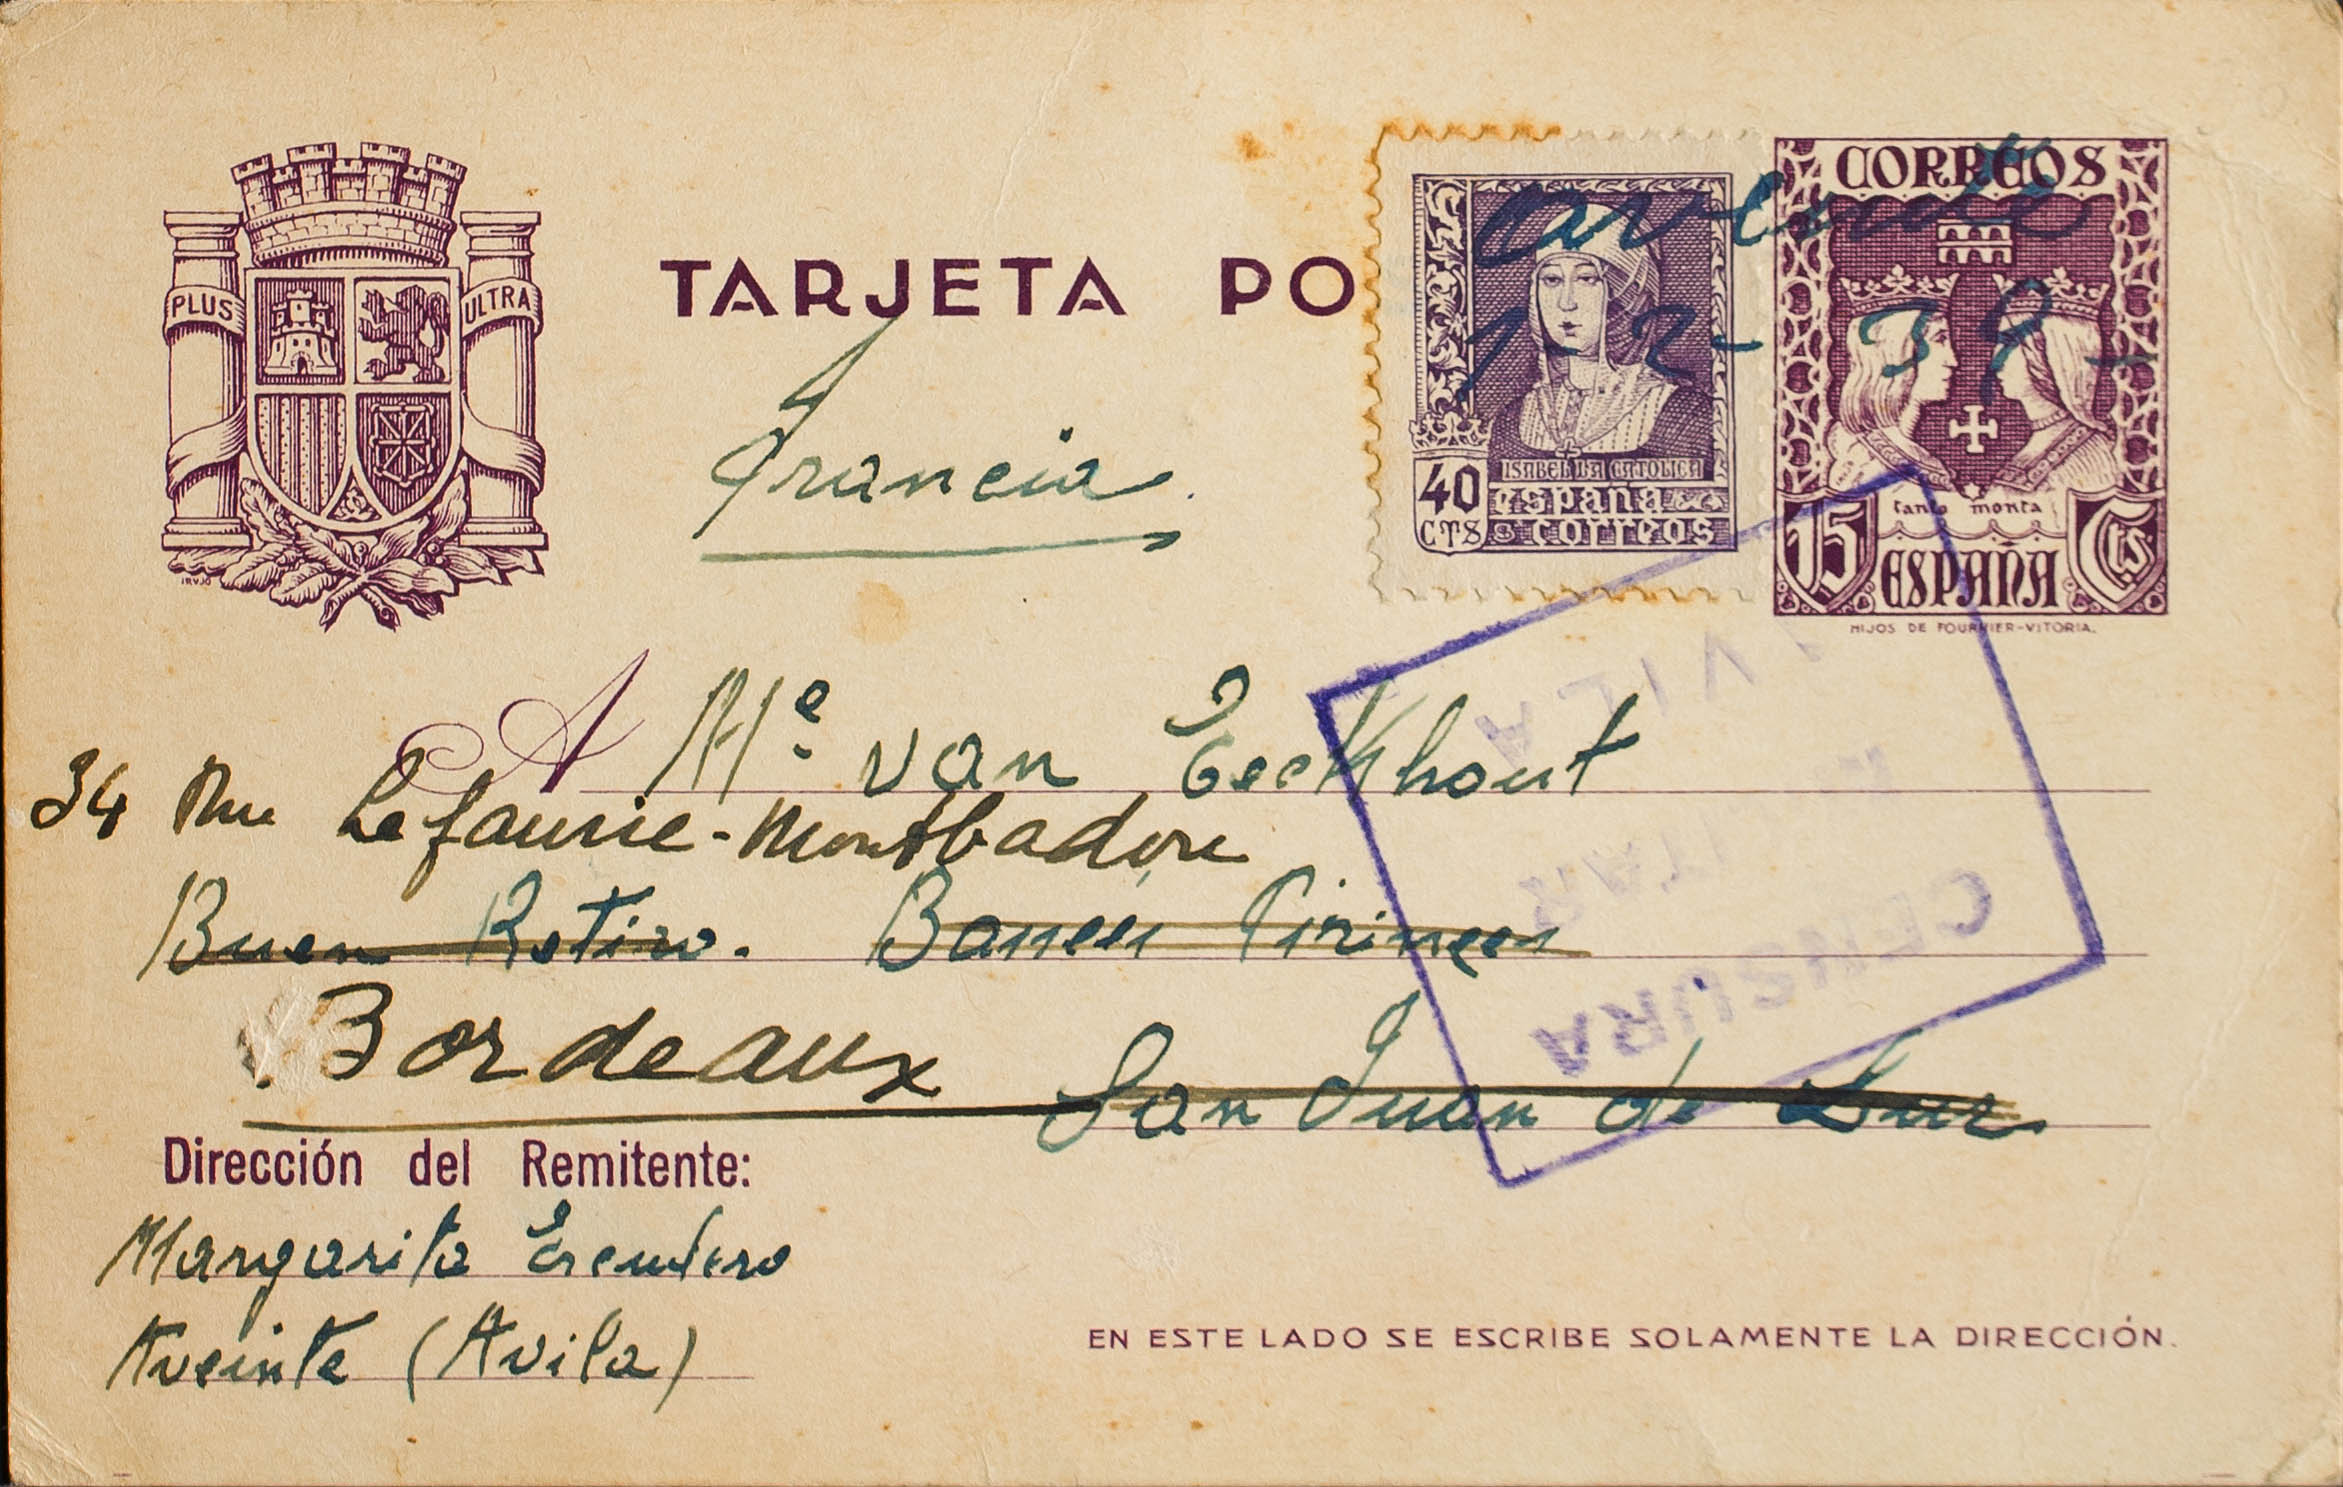 PLUS ULTRA
IRUJO
TARJETA PO
Francia
aveinte
1-2-39-
ISABEL LA CATOLICA
40 CTS
españa
correos
CORREOS
tanto monta
15 Cts.
ESPAÑA
HIJOS DE FOURNIER-VITORIA.
A Me van Eeckhout
34 Rue Lefaurie-Montbadon
Buen Retiro. Pirineos
Bordeaux San Juan de Luz
AVILA
MILITAR
CENSURA
Dirección del Remitente:
Margarita Escudero
Aveinte (Avila)
EN ESTE LADO SE ESCRIBE SOLAMENTE LA DIRECCIÓN.